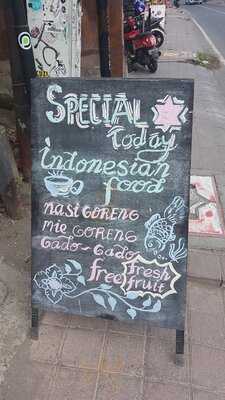 SPECIAL
Today
indonesian
food
nasi GORENG
mie GORENG
Gado-Gado
free
fresh
fruit